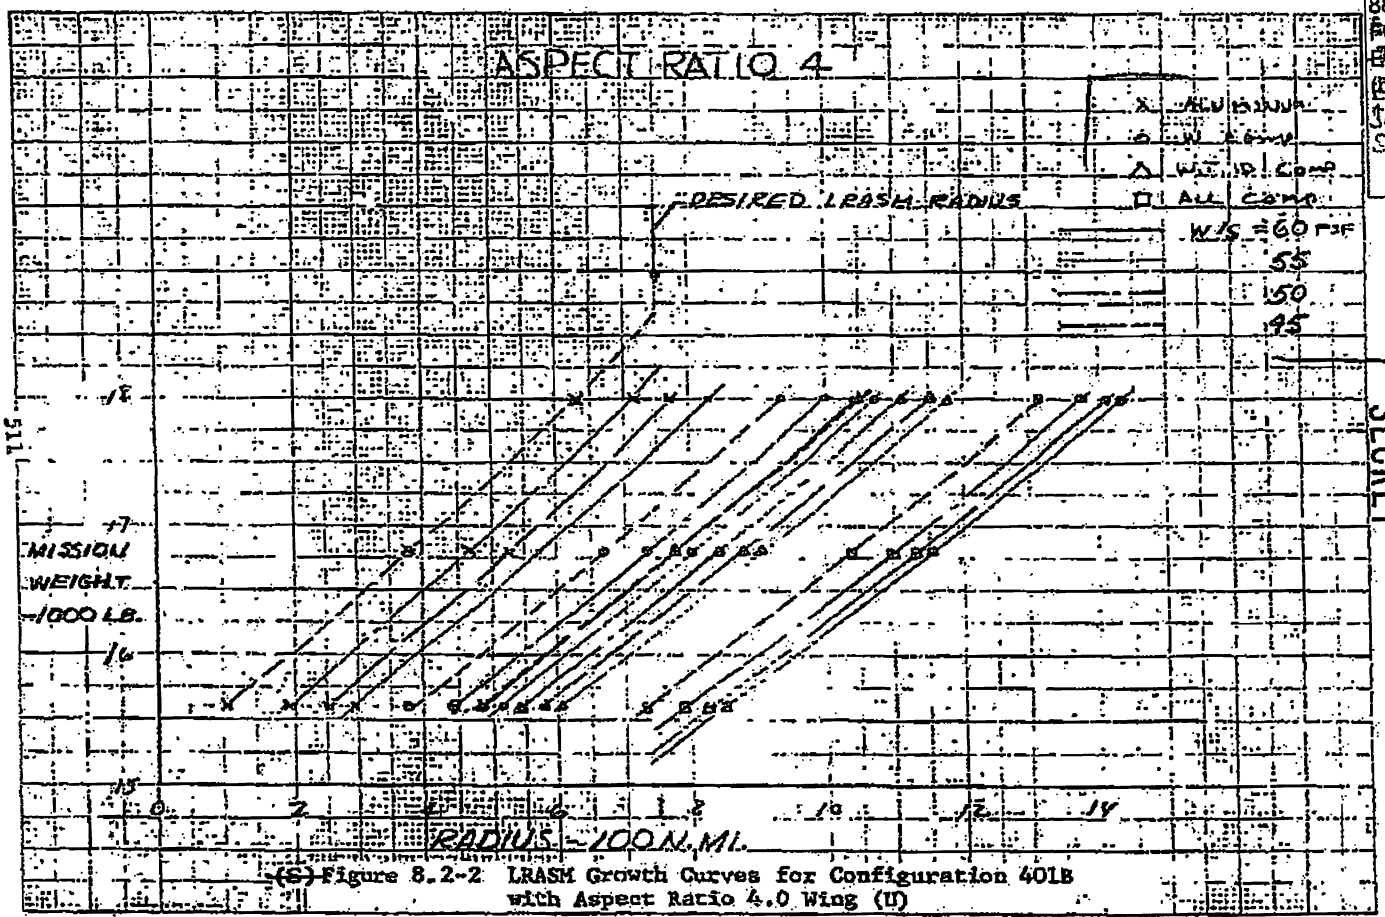 ASPECT RATIO 4
X ALUMINUM
O W COMP
△ W.T. ID. COMP
□ ALL COMP.
W/S = 60 PSF
55
50
45
DESIRED LRASM RADIUS
18
17
MISSION
WEIGHT
-1000 LB.
16
15
0 2 4 6 8 10 12 14
RADIUS - 100 N.MI.
(S) Figure 8.2-2 LRASM Growth Curves for Configuration 401B
with Aspect Ratio 4.0 Wing (U)
511